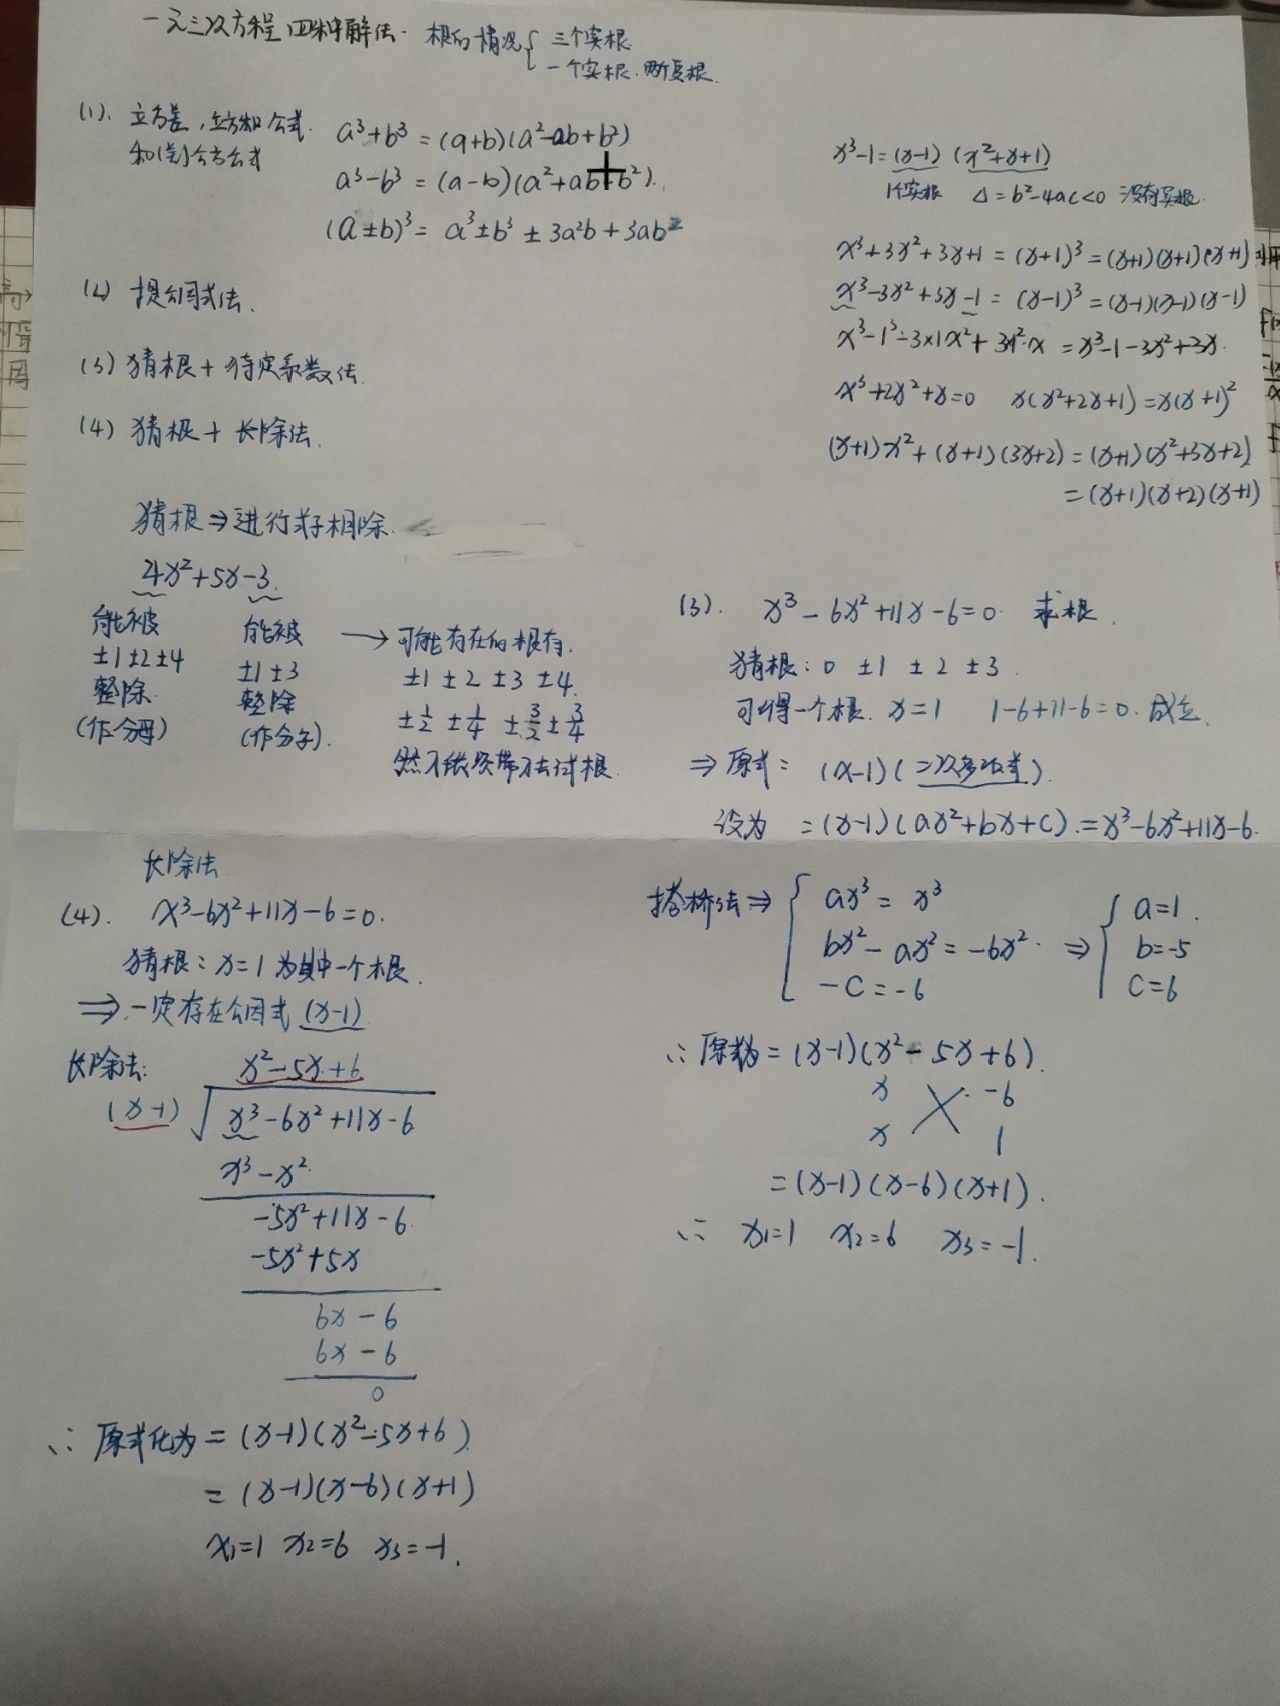 一元三次方程四种解法. 根的情况{ 三个实根
一个实根. 两个复根.
(1). 立方差, 立方和公式.
和(差)立方公式
a³+b³ = (a+b)(a²-ab+b²)
a³-b³ = (a-b)(a²+ab+b²).
(a±b)³ = a³±b³ ± 3a²b + 3ab²
(2) 提公因式法.
(3) 猜根 + 待定系数法.
(4) 猜根 + 长除法.
x³-1=(x-1) (x²+x+1)
1个实根 Δ=b²-4ac<0 没有实根.
x³+3x²+3x+1 = (x+1)³=(x+1)(x+1)(x+1)
x³-3x²+3x-1 = (x-1)³=(x-1)(x-1)(x-1)
x³-1³-3×1x²+31²·x = x³-1-3x²+3x.
x³+2x²+x=0 x(x²+2x+1)=x(x+1)²
(x+1)x²+(x+1)(3x+2)=(x+1)(x²+3x+2)
=(x+1)(x+2)(x+1)
猜根⇒进行式子相除.
4x²+5x-3.
能被
±1±2±4
整除.
(作分母)
能被
±1±3
整除
(作分子).
→ 可能存在的根有.
±1 ±2 ±3 ±4.
±1/2 ±1/4 ±3/2 ±3/4
然后依次带入去试根.
(3). x³-6x²+11x-6=0 求根.
猜根: 0 ±1 ±2 ±3.
可得一个根. x=1 1-6+11-6=0. 成立.
⇒ 原式= (x-1)(二次多项式).
设为 =(x-1)(ax²+bx+c).=x³-6x²+11x-6.
搭桥法⇒ { ax³ = x³
bx²-ax²=-6x². ⇒
-c=-6
{ a=1.
b=-5
c=6
∴ 原式为=(x-1)(x²-5x+6).
x -6
x 1
=(x-1)(x-6)(x+1).
∴ x₁=1 x₂=6 x₃=-1.
长除法
(4). x³-6x²+11x-6=0.
猜根: x=1 为其中一个根.
⇒ 一定存在公因式 (x-1)
长除法: x²-5x+6
(x-1) √ x³-6x²+11x-6
x³-x²
-5x²+11x-6
-5x²+5x
6x-6
6x-6
0
∴ 原式化为=(x-1)(x²-5x+6)
=(x-1)(x-6)(x+1)
x₁=1 x₂=6 x₃=-1.